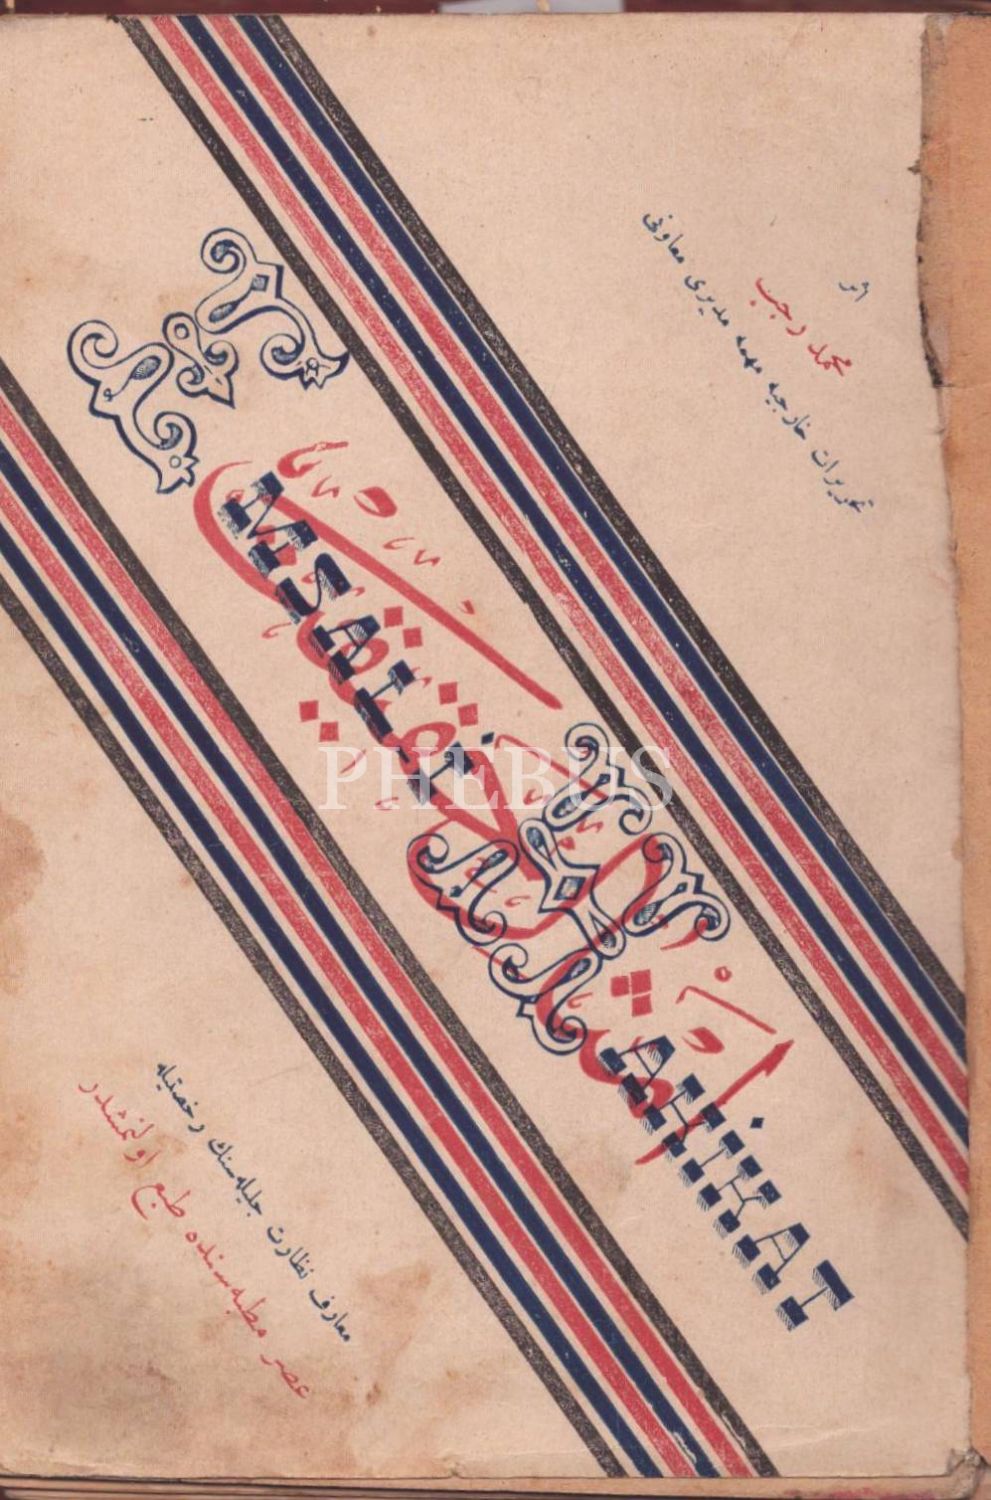 اثر
محمد رجب
تحریرات خارجیه مهمه مدیری معاونی
امثال حقیقت
MSALİ HAKİKAT
معارف نظارت جلیله‌سنك رخصتیله
عصر مطبعه‌سنده طبع اولنمشدر
PHEBUS